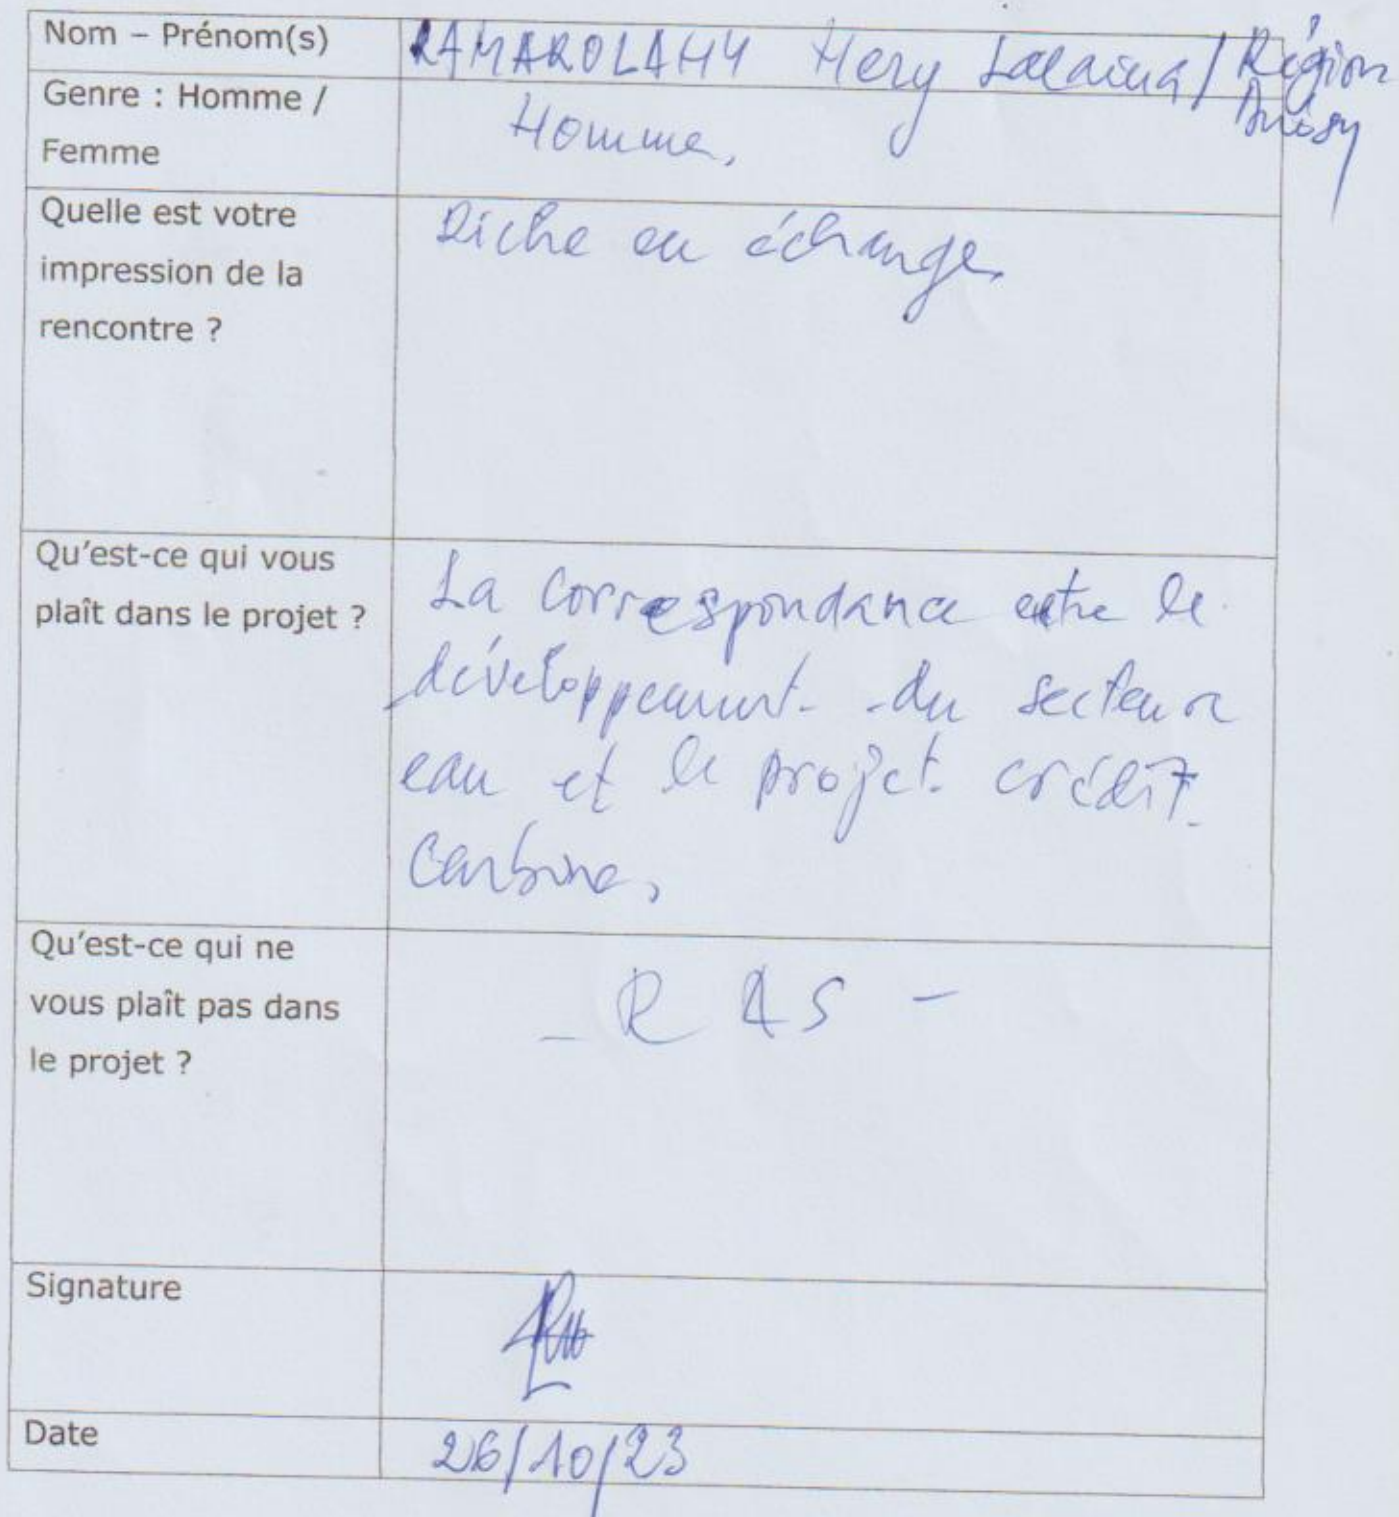 Nom – Prénom(s)
RAMAROLAHY Hery Lalaina / Région
Anosy
Genre : Homme /
Femme
Homme.
Quelle est votre
impression de la
rencontre ?
Riche en échange.
Qu'est-ce qui vous
plaît dans le projet ?
La correspondance entre le
développement du secteur
eau et le projet crédit
Carbone,
Qu'est-ce qui ne
vous plaît pas dans
le projet ?
- R A S -
Signature
Date
26/10/23